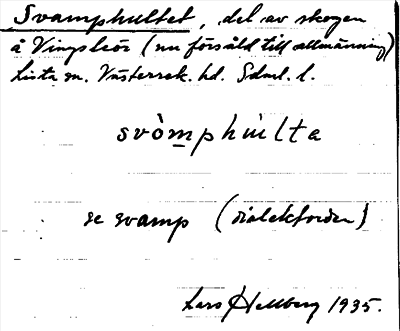 Svamphultet, del av skogen
å Vingsleör (nu försåld till allmänning)
Lista sn. Västerrek. hd. Sdml. l.
svòmphùlta
se svamp (dialektorden)
Lars Hellberg 1935.